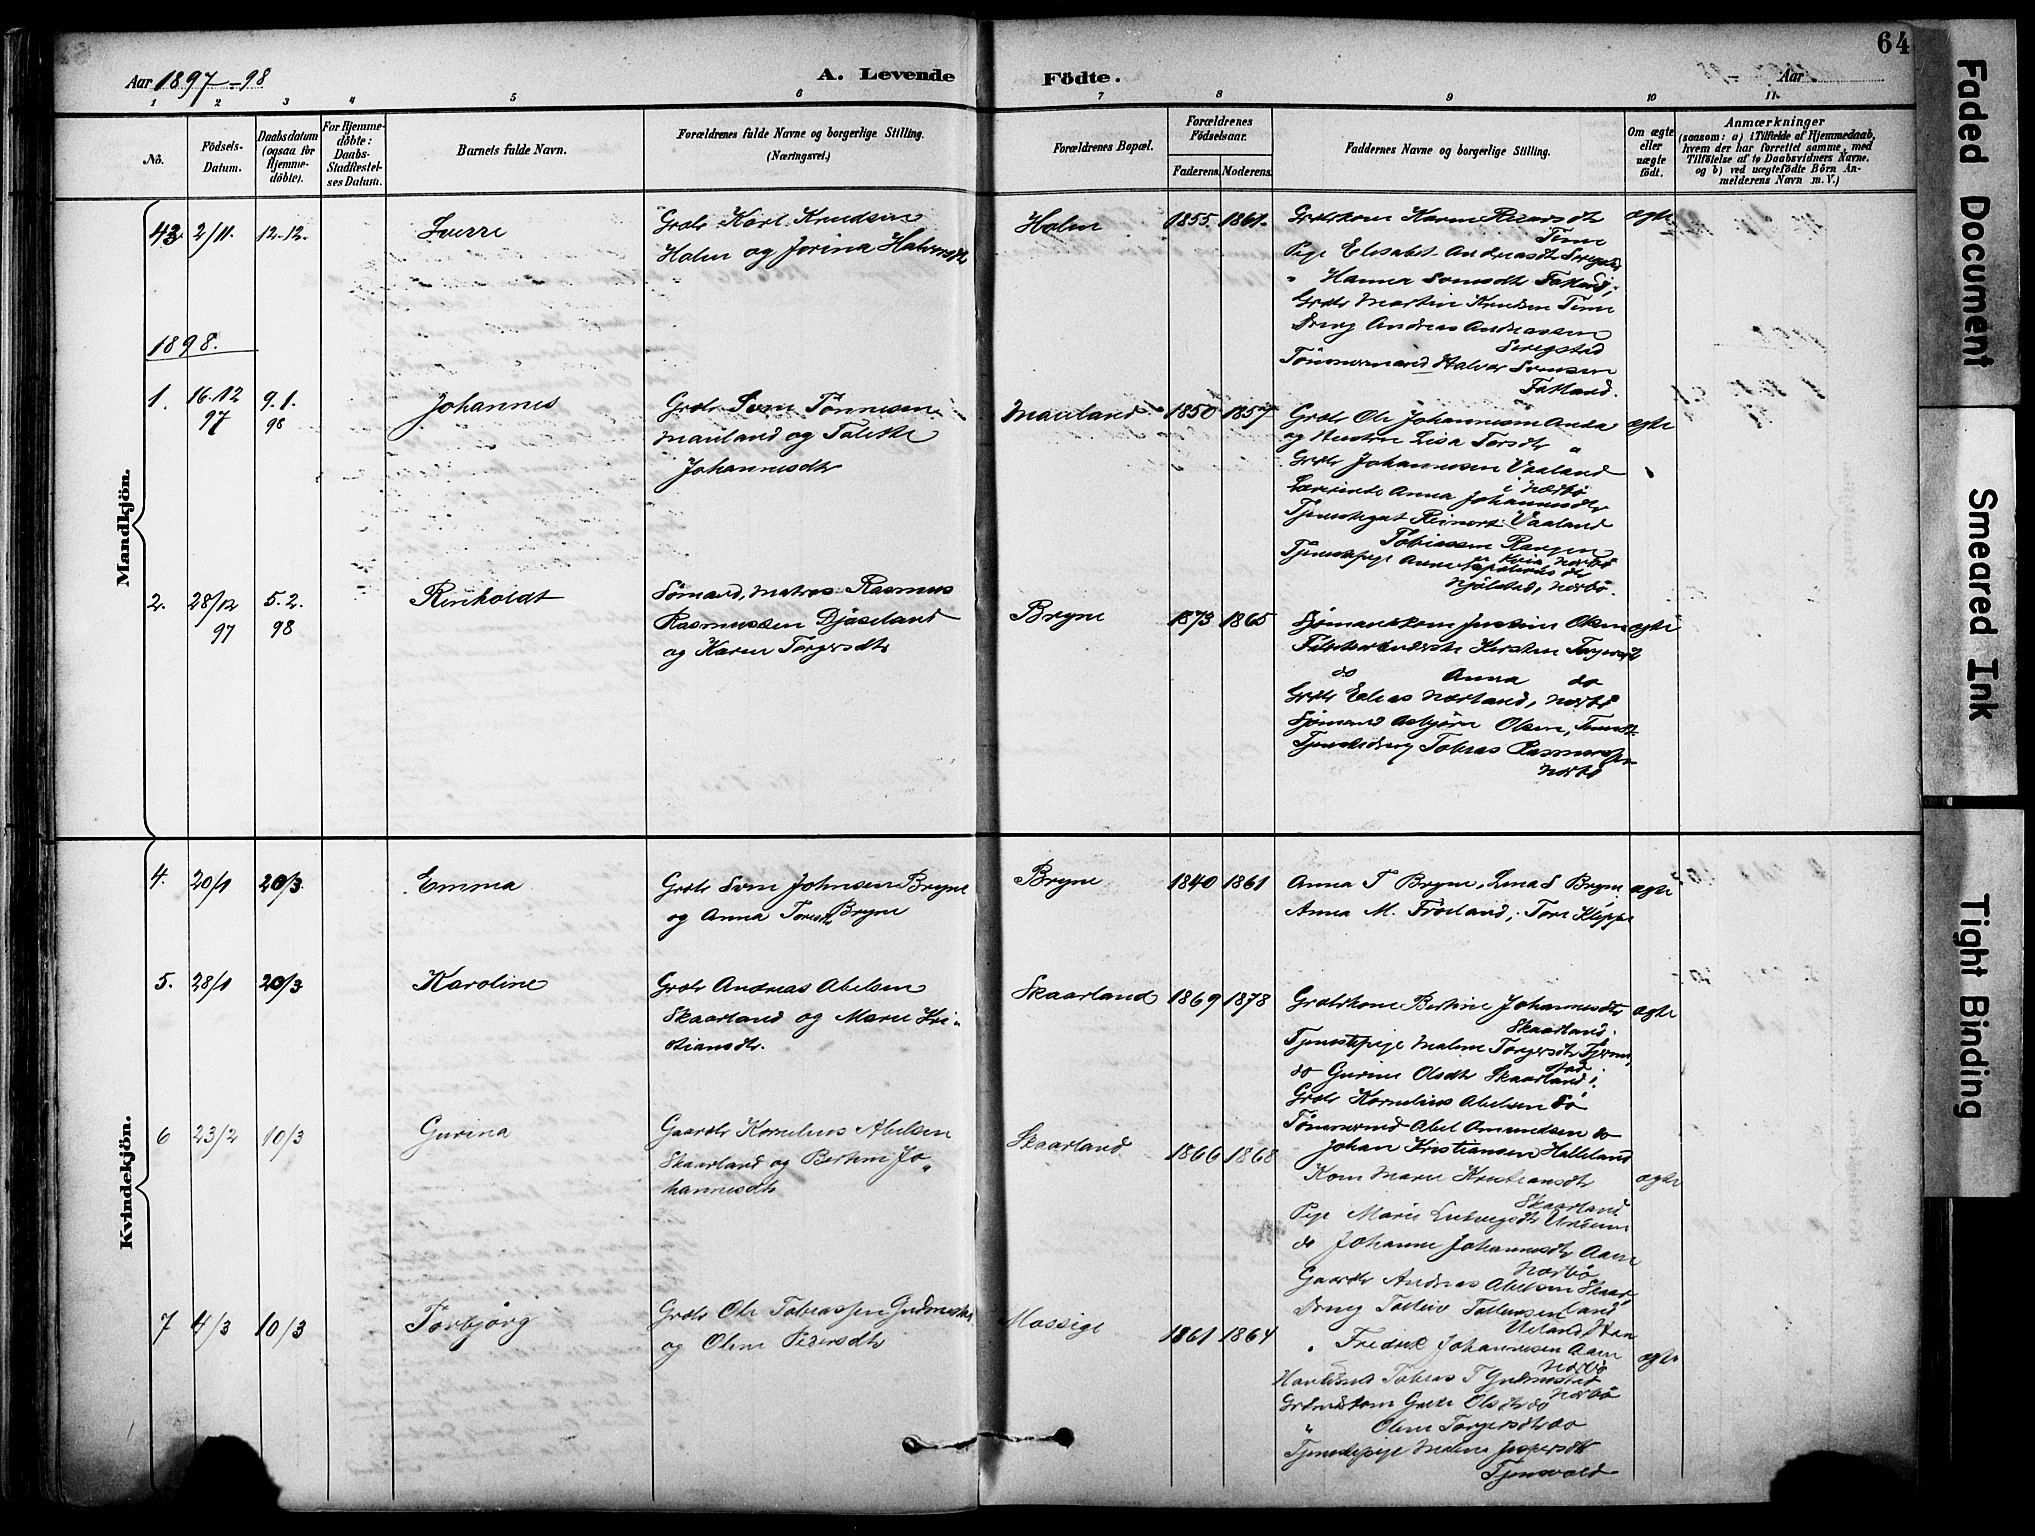 64
Aar 1897-98
A. Levende
Födte.
Aar
1 2 3 4 5 6 7 8 9 10 11
No.
Födsels-Datum.
Daabsdatum (ogsaa for Hjemme-döbte).
For Hjemme-döbte: Daabs-Stadfæstel-ses Datum.
Barnets fulde Navn.
Forældrenes fulde Navne og borgerlige Stilling.
(Næringsvei.)
Forældrenes Bopæl.
Forældrenes Födselsaar.
Faderens. Moderens.
Faddernes Navne og borgerlige Stilling.
Om ægte eller uægte födt.
Anmærkninger
(saasom: a) i Tilfælde af Hjemmedaab,
hvem der har forrettet samme, med
Tilföielse af to Daabsvidners Navne.
og b) ved uægtefödte Börn An-
melderens Navn m. V.)
Mandkjön.
43. 2/11. 12-12. Sverre
Grdr Karl Knudsen
Holen og Jorina Halvorsdtr
Holen 1855. 1861.
Grdrkone Karen
Time
Pige Elisabet Andreasdtr
" Hanna
Grdr Martin Knudsen Time
Dreng Andreas Andreassen
Tømmermand Halvor Svensen
ægte
1898.
1. 16.12 97 9.1. 98 Johannes
Grdr Sven Tönnesen
Mauland og Tolette
Johannesdtr
Mauland 1850 1857
Grdr Ole Johannesen Anda
og Hustru Lisa Torsdtr "
Grdr Johannesen Vaaland
i Nærbø
Lærerinde Anna Johannesdtr
Vaaland
Tjenestegut Reinert
Tobiassen
Tjenestepige Anne
Njølstad, Nærbø.
ægte
2. 28/12 97 5.2. 98 Reinholdt
Sømand, matros Rasmus
Rasmussen Djøseland
og Karen Torgersdtr
Bryne 1873 1865
Sjømandskone Justine Olsen
Kirsten Torgersdtr
do Anna do
Grdr Elias Nærland, Nærbø
Sjømand Asbjørn Olsen,
Tjenestedreng Tobias Rasmussen
Nærbø
ægte
Kvindekjön.
4. 20/1 20/3. Emma
Grdr Sven Johnsen Bryne
og Anna Toresdtr Bryne
Bryne 1840 1861
Anna T Bryne, Lena S Bryne,
Anna M. Frøiland, Tore Kleppe
ægte
5. 28/1 20/3 Karoline
Grdr Andreas Abelsen
Skaarland og Marie Kri-
stiansdtr.
Skaarland 1869 1878
Grdrkone Bertine Johannesdtr
Skaarland.
Tjenestepige Malene Torgersdtr
do Gurine Olsdtr Skaarland,
Grdr Kornelius Abelsen do
Tømmermd Abel Amundsen do
Johan Kristiansen Halleland
ægte
6 23/2 10/3 Gurina
Gaardr Kornelius Abelsen
Skaarland og Bertine Jo-
hannesdtr
Skaarland 1866 1868
Kone Marie Kristiansdtr
Skaarland
Pige Marie Ludvigsdtr Undheim
do Johanne Johannesdtr Aan
Nærbø
Gaardr Andreas Abelsen Skaar-
land
Dreng
" Fredrik Johannesen Aan
Nærbø
ægte
7 4/3 10/3 Torbjørg
Grdr Ole Tobiassen Gudmestad
og Olene Pedersdtr
Mossige 1861 1864
Tobias T Gudmestad
Nærbø
Grdmdskone Olsdtr do
" Olene Torgersdtr do
Tjenestepige Malene Jespersdtr
Tjensvold
ægte
Faded Document
Smeared Ink
Tight Binding